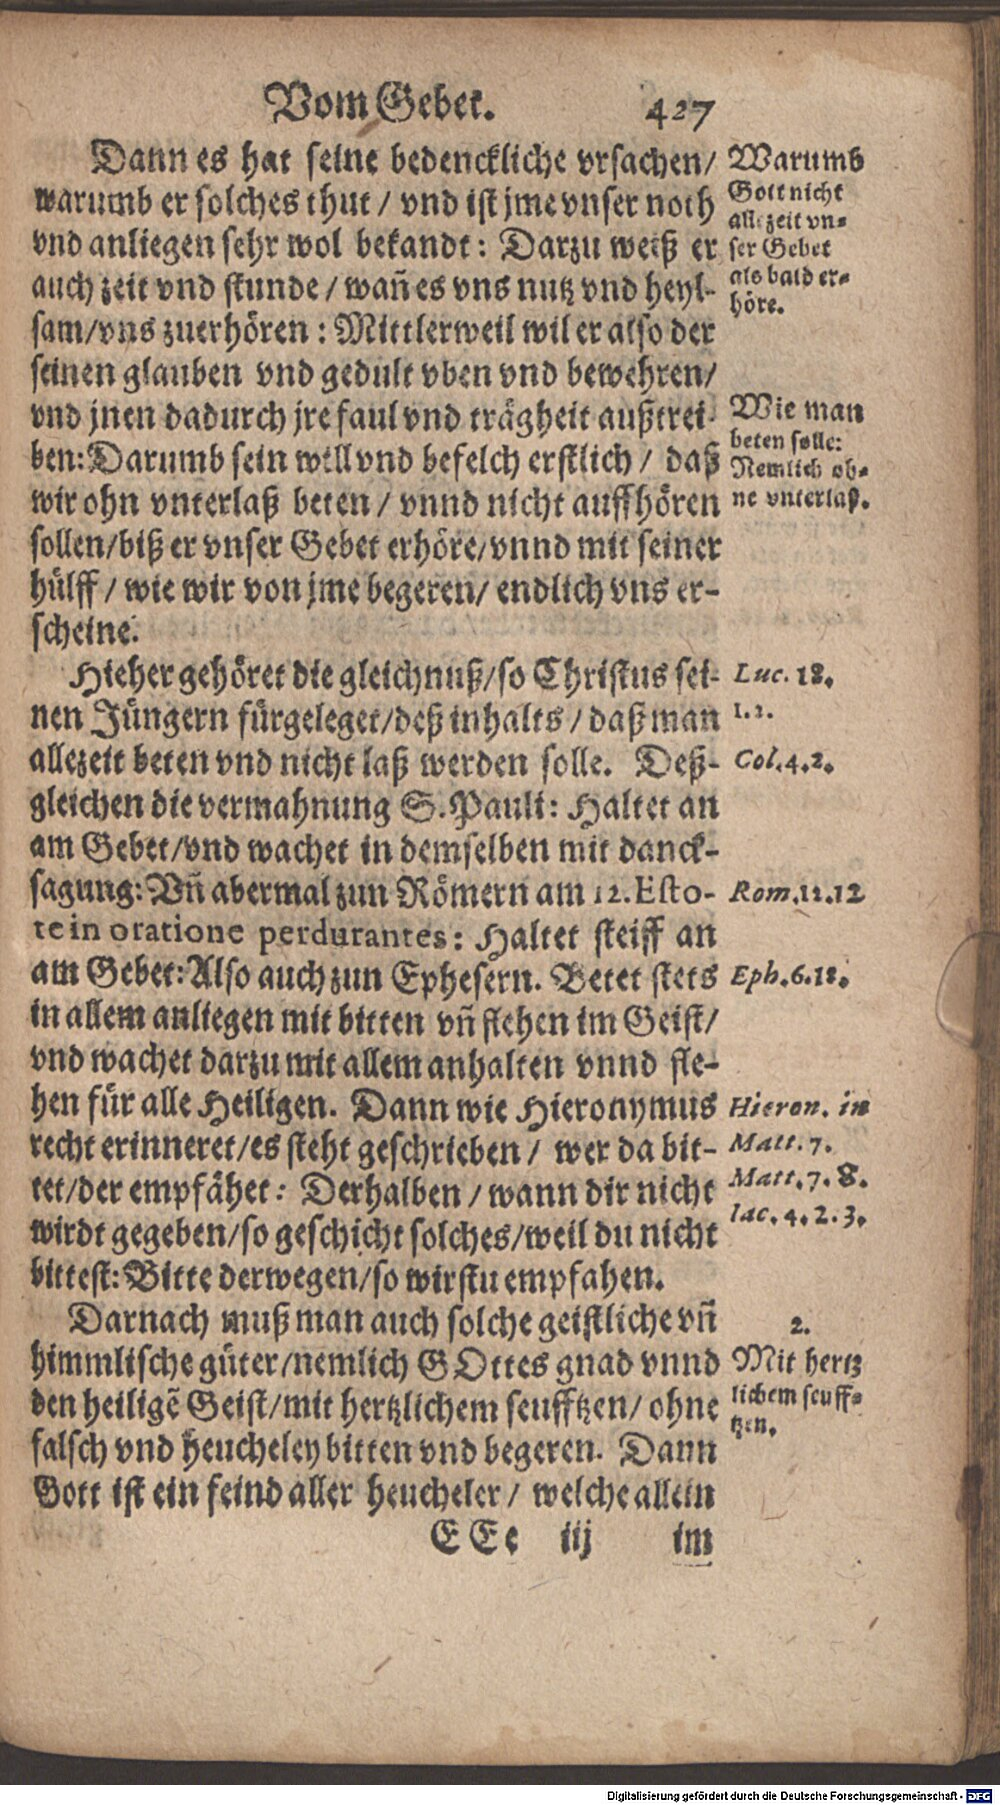 Vom Gebet. 427
Dann es hat seine bedenckliche vrsachen/
warumb er solches thut / vnd ist jme vnser noth
vnd anliegen sehr wol bekandt: Darzu weiß er
auch zeit vnd stunde / wañ es vns nutz vnd heyl-
sam/vns zuerhören : Mittlerweil wil er also der
seinen glauben vnd gedult vben vnd bewehren/
vnd jnen dadurch jre faul vnd trägheit außtrei-
ben: Darumb sein will vnd befelch erstlich / daß
wir ohn vnterlaß beten / vnnd nicht auffhören
sollen/biß er vnser Gebet erhöre/vnnd mit seiner
hülff / wie wir von jme begeren/ endlich vns er-
scheine.
Hieher gehöret die gleichnuß/so Christus sei-
nen Jüngern fürgeleget/deß inhalts / daß man
allezeit beten vnd nicht laß werden solle. Deß-
gleichen die vermahnung S. Pauli: Haltet an
am Gebet/vnd wachet in demselben mit danck-
sagung: Vñ abermal zun Römern am 12. Esto-
te in oratione perdurantes: Haltet steiff an
am Gebet: Also auch zun Ephesern. Betet stets
in allem anliegen mit bitten vñ flehen im Geist/
vnd wachet darzu mit allem anhalten vnnd fle-
hen für alle Heiligen. Dann wie Hieronymus
recht erinneret/es steht geschrieben / wer da bit-
tet/der empfähet: Derhalben / wann dir nicht
wirdt gegeben/so geschicht solches/weil du nicht
bittest: Bitte derwegen/so wirstu empfahen.
Darnach muß man auch solche geistliche vñ
himmlische güter/nemlich GOttes gnad vnnd
den heiligẽ Geist/mit hertzlichem seufftzen/ ohne
falsch vnd heucheley bitten vnd begeren. Dann
Gott ist ein feind aller heucheler / welche allein
E E e iij im
Warumb
Gott nicht
allezeit vn-
ser Gebet
als bald er-
höre.
Wie man
beten solle:
Nemlich oh-
ne vnterlaß.
Luc. 18.
1.2.
Col. 4. 2.
Rom. 12. 12
Eph. 6. 18.
Hieron. in
Matt. 7.
Matt. 7. 8.
Iac. 4. 2. 3.
2.
Mit hertz
lichem seuff-
tzen.
Digitalisierung gefördert durch die Deutsche Forschungsgemeinschaft - DFG